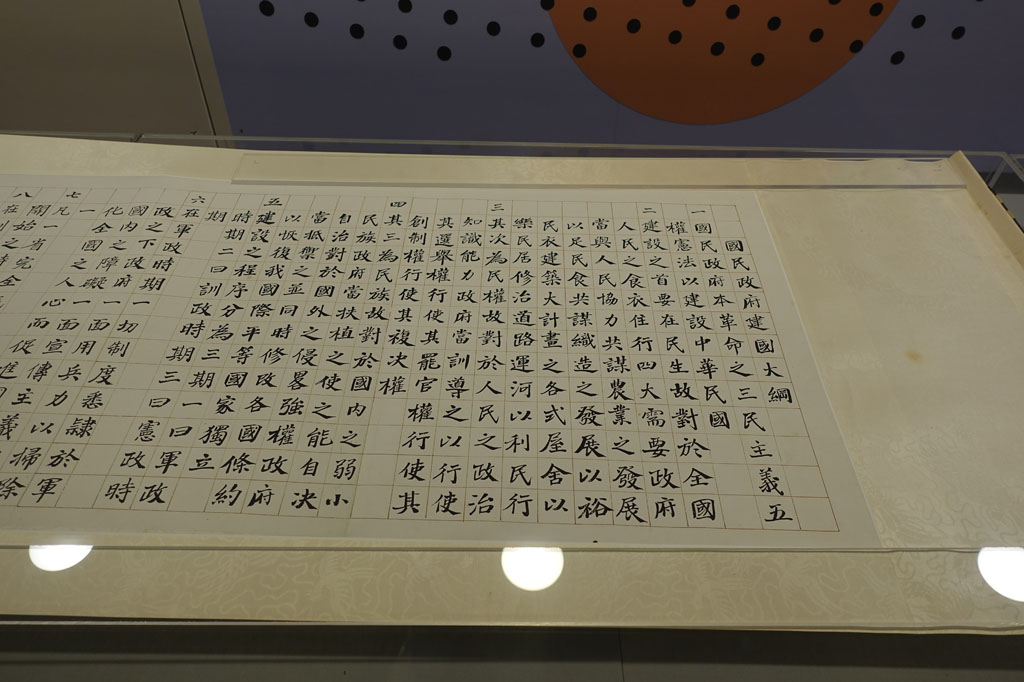 國民政府建國大綱
一 國民政府本革命之三民主義五
權憲法以建設中華民國
二 建設之首要在民生故對於全國
人民之食衣住行四大需要政府
當與人民協力共謀農業之發展
以足民食共謀織造之發展以裕
民衣建築大計畫之各式屋舍以
樂民居修治道路運河以利民行
三 其次為民權故對於人民之政治
知識能力政府當訓導之以行使
其選舉權行使其罷官權行使其
創制權行使其複決權
四 其三為民族故對於國內之弱小
民族政府當扶植之使之能自決
自治對於國外之侵畧強權政府
當抵禦之並同時修改各國條約
以恢復我國際平等國家獨立
五 建設之程序分為三期一曰軍政
時期二曰訓政時期三曰憲政時
期
六 在軍政時期一切制度悉隸於軍
政之下政府一面用兵力以掃除
國內之障礙一面宣傳主義
化全國之人心而促進
一
七 凡一省完全
開始之時
八 在